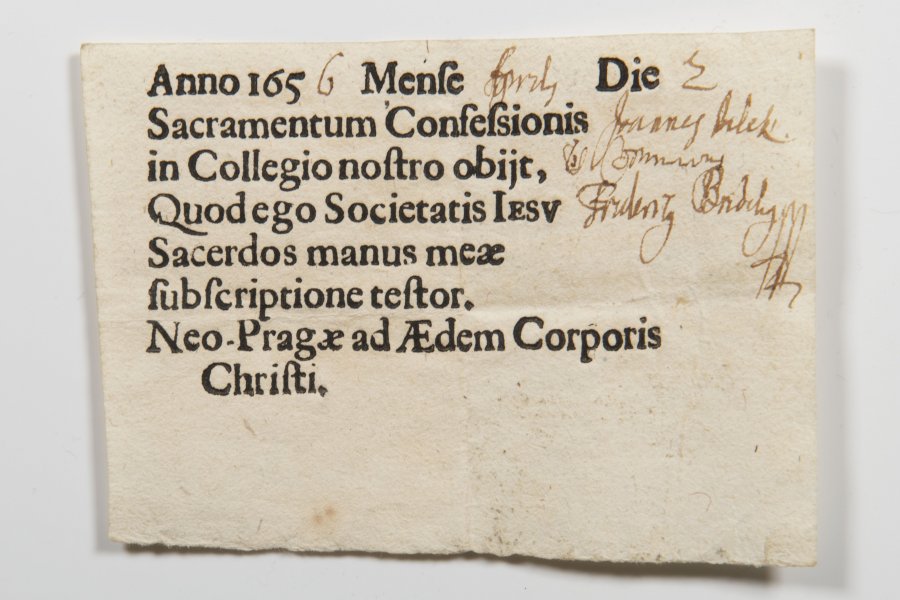 Anno 1656 Menſe Aprili Die 2
Sacramentum Confeſsionis Joannes
in Collegio noſtro obijt,
Quod ego Societatis IESV Fridericus
Sacerdos manus meæ
ſubſcriptione teſtor.
Neo-Pragæ ad Ædem Corporis
Chriſti.